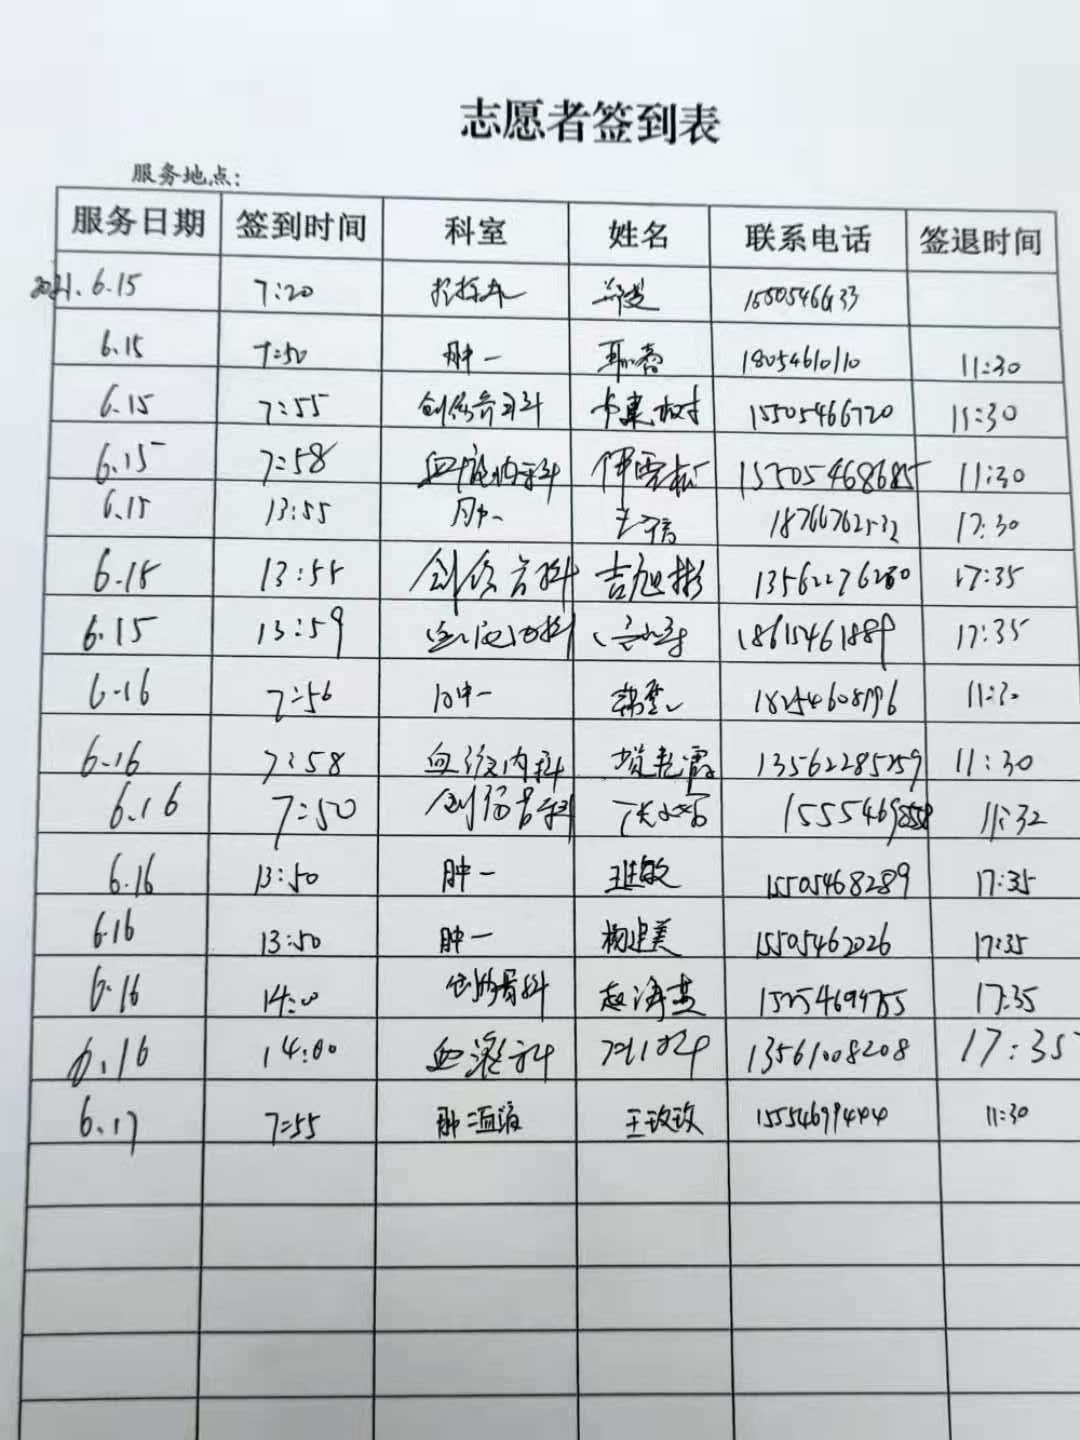 志愿者签到表
服务地点:
服务日期 签到时间 科室 姓名 联系电话 签退时间
2021.6.15 7:20
6.15 7:50 肿一 18054610110 11:30
6.15 7:55 15505466720 11:30
6.15 7:58 血液内科 伊雪松 11:30
6.15 13:55 肿一 18766762532 17:30
6.15 13:55 创伤骨科 吉旭彬 13562276280 17:35
6.15 13:59 血液内科 18615461889 17:35
6.16 7:56 肿一 18254608796 11:30
6.16 7:58 血液内科 13562285259 11:30
6.16 7:50 创伤骨科 11:32
6.16 13:50 肿一 15505468289 17:35
6.16 13:50 肿一 杨建美 15505462026 17:35
6.16 14:00 创伤骨科 赵海燕 17:35
6.16 14:00 血液科 13561008208 17:35
6.17 7:55 肿二血液 王玫玫 15554699444 11:30